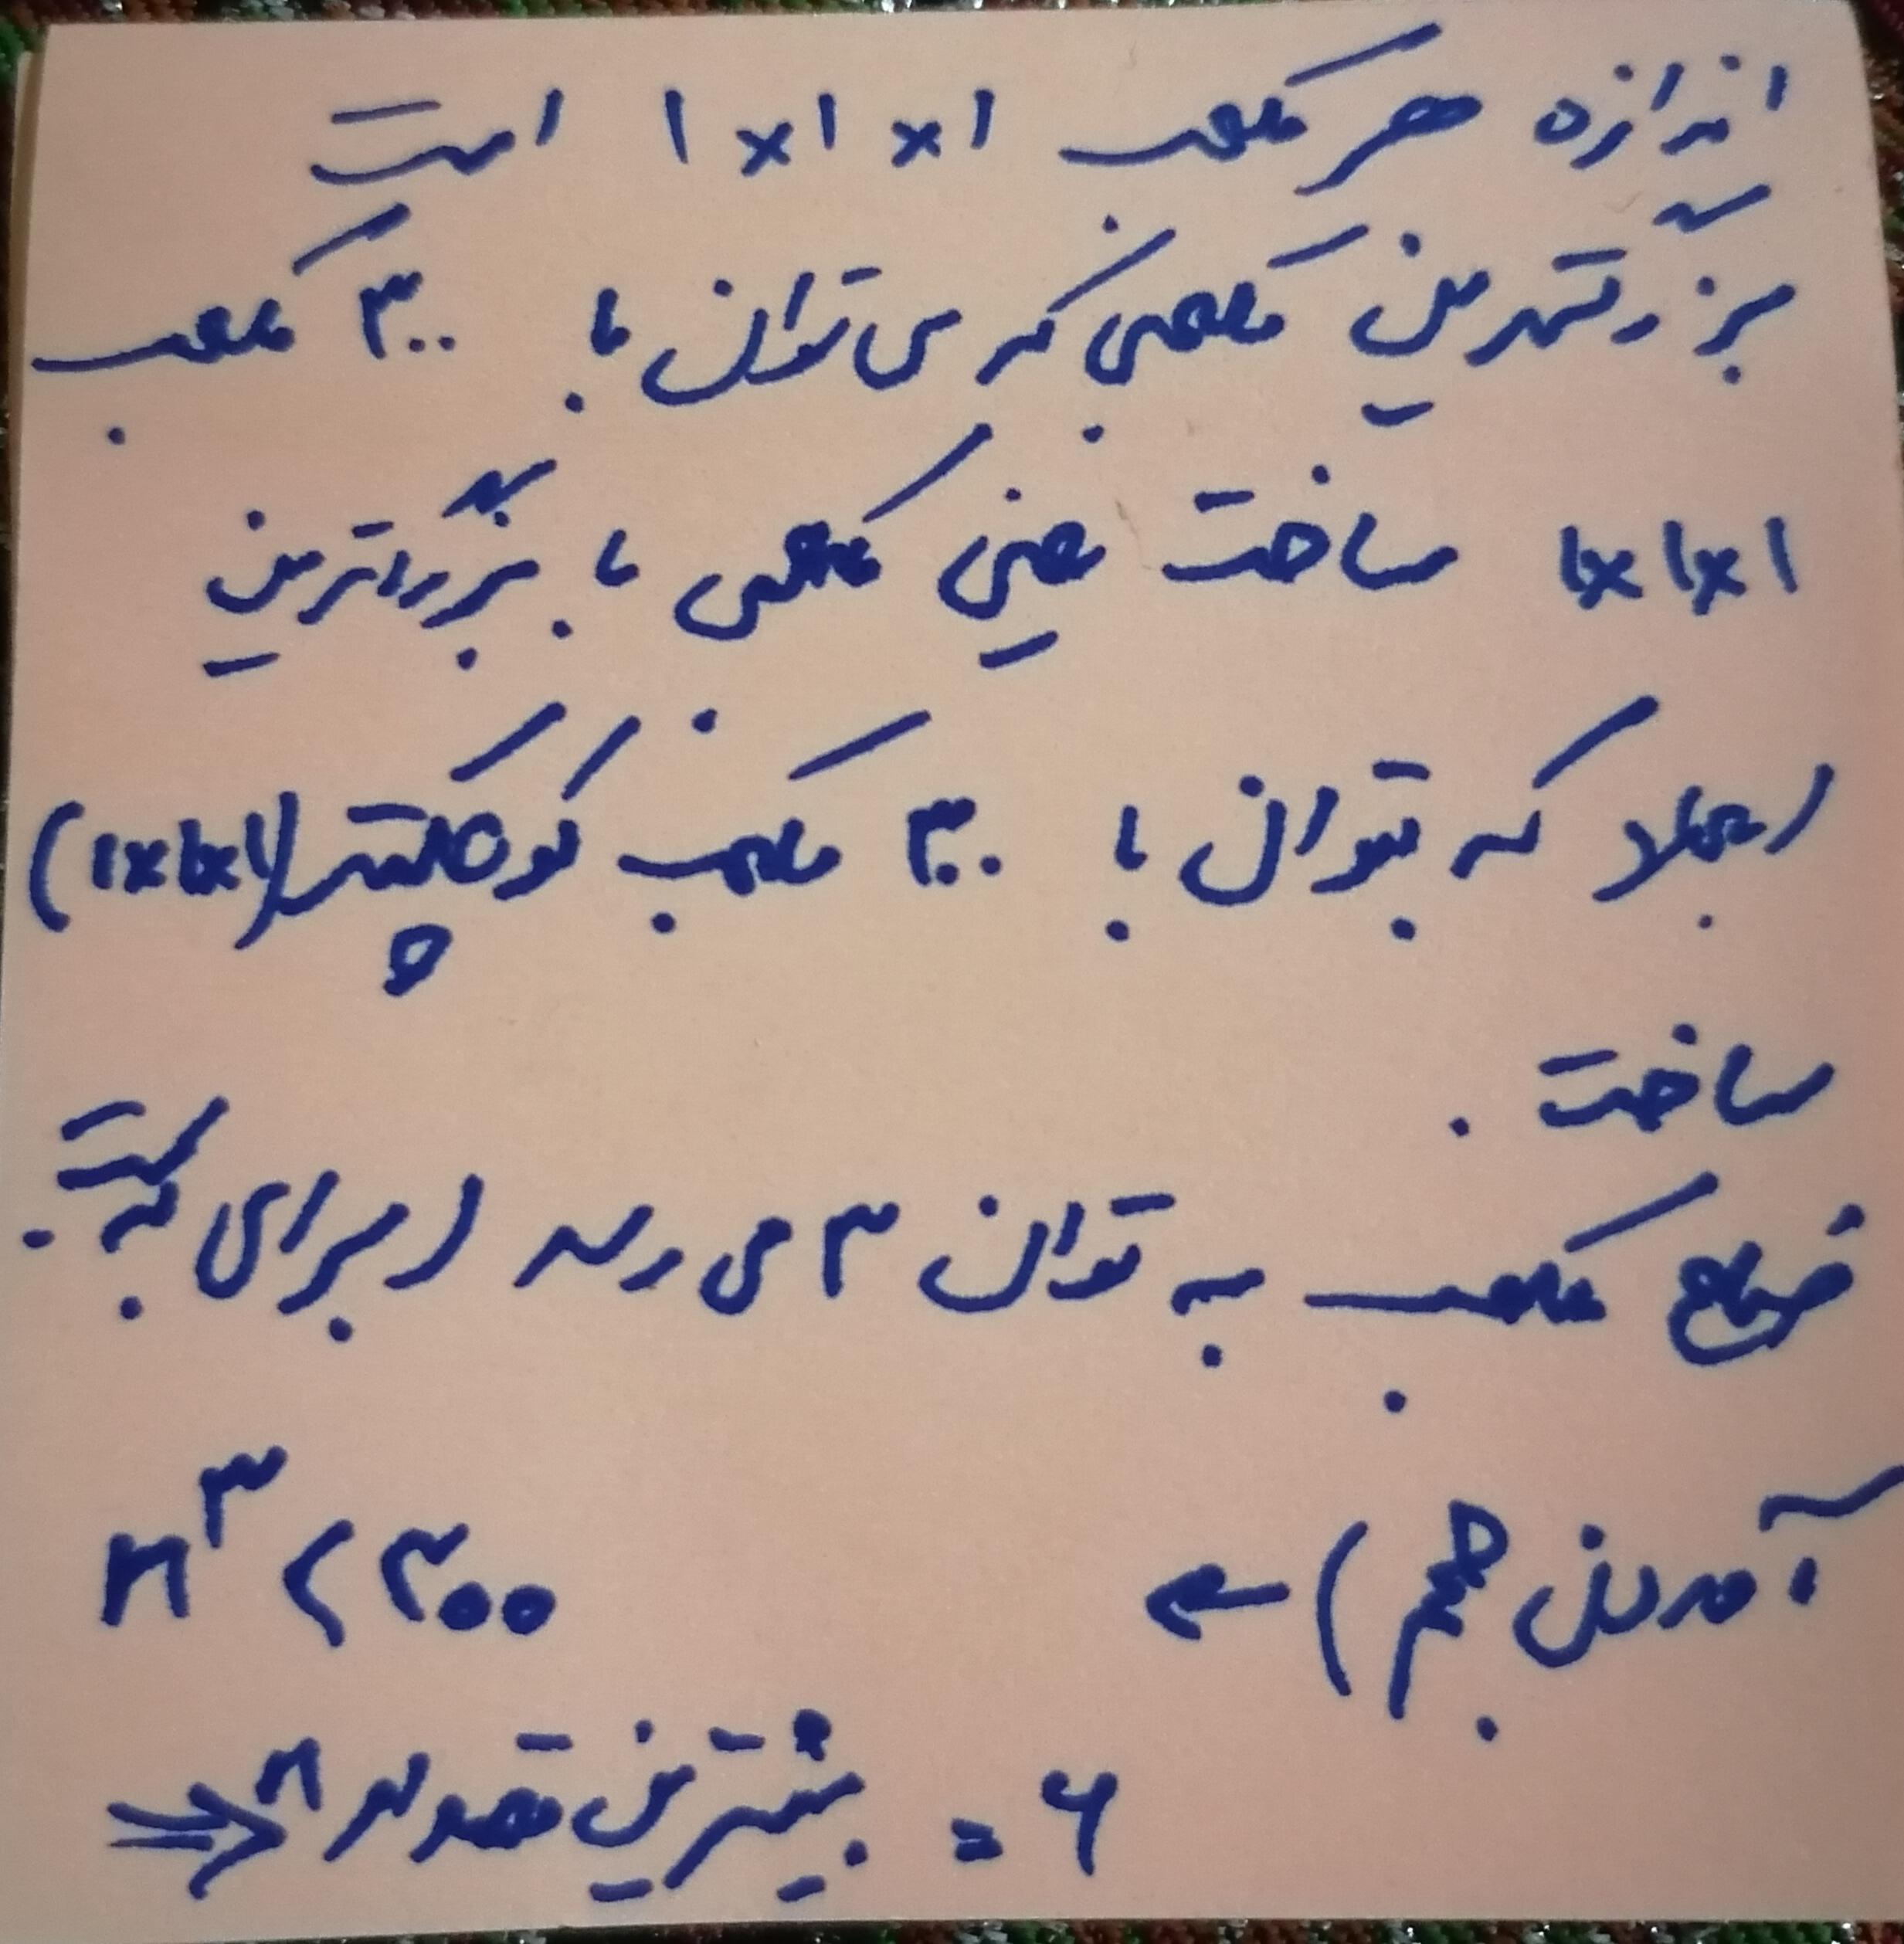 اندازه هر مکعب ۱×۱×۱ است
بزرگترین مکعبی که می توان با ۳۰۰ مکعب
۱×۱×۱ ساخت یعنی مکعبی با بزرگترین
ابعاد که بتوان با ۳۰۰ مکعب کوچکتر (۱×۱×۱)
ساخت .
ضلع مکعب به توان ۳ می رسد (برای بدست
آمدن حجم) ←
n^۳ < ۳۰۰
⇒ بیشترین مقدار n = ۶